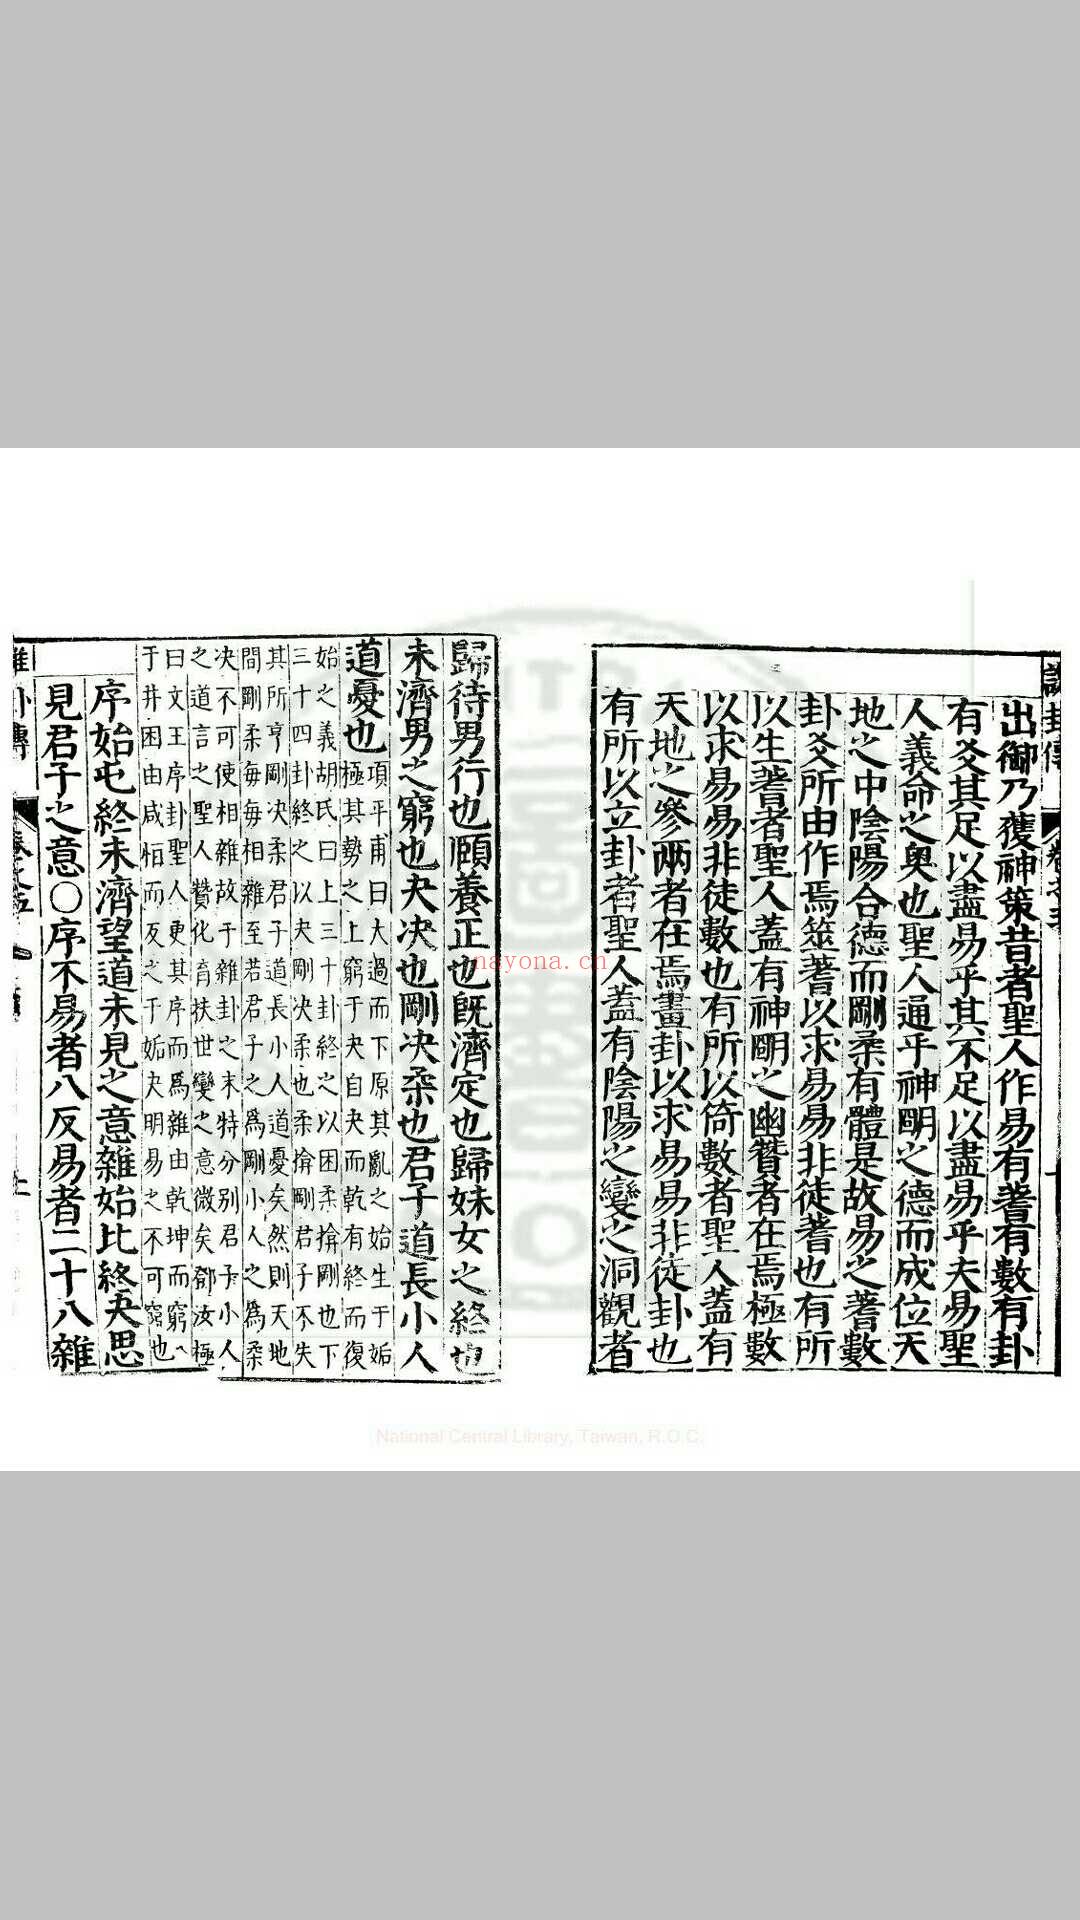 說卦傳
卷之五
出御乃獲神策昔者聖人作易有蓍有數有卦
有爻其足以盡易乎其不足以盡易乎夫易聖
人義命之奧也聖人通乎神明之德而成位天
地之中陰陽合德而剛柔有體是故易之蓍數
卦爻所由作焉筮蓍以求易易非徒蓍也有所
以生蓍者聖人蓋有神明之幽贊者在焉極數
以求易易非徒數也有所以倚數者聖人蓋有
天地之參兩者在焉畫卦以求易易非徒卦也
有所以立卦者聖人蓋有陰陽之變之洞觀者
歸待男行也頤養正也旣濟定也歸妹女之終也
未濟男之窮也夬决也剛决柔也君子道長小人
道憂也
項平甫曰大過而下原其亂之始生于姤
極其勢之上窮于夬自夬而乾有終而復
始之義胡氏曰上三十卦終之以困柔揜剛也下
三十四卦終之以夬剛决柔也柔揜剛君子不失
其所亨剛决柔君子道長小人道憂矣然則天地
間剛柔每每相雜至若君子之爲剛小人之爲柔
决不可使相雜故于雜卦之末特分别君子小人
之道言之聖人贊化育扶世變之意微矣鄧汝極
曰文王序卦聖人更其序而爲雜由乾坤而窮
于井困由咸恒而反之于姤夬明易之不可窮也
序始屯終未濟望道未見之意雜始比終夬思
見君子之意○序不易者八反易者二十八雜
雜卦傳
卷之五
nayona.cn
National Central Library, Taiwan, R.O.C.